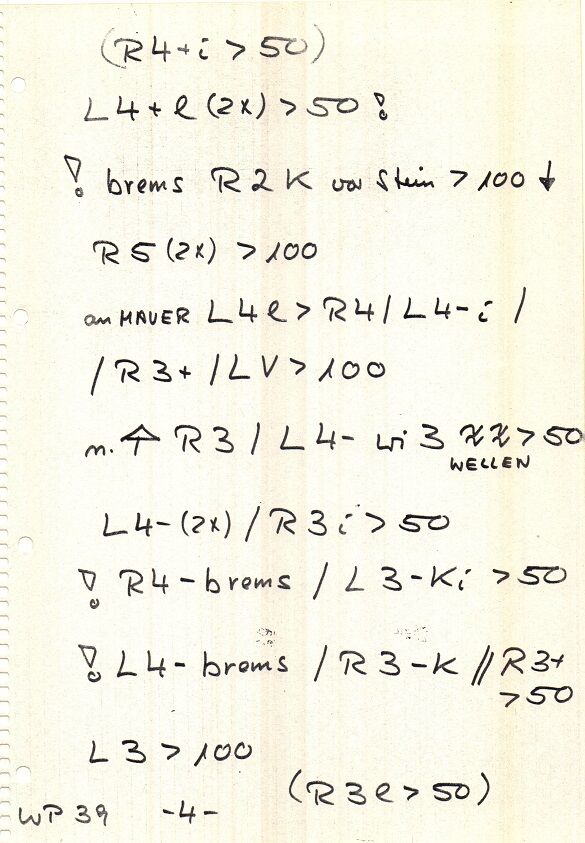 (R4+i > 50)
L4+l (2x) > 50 !
! brems R2K vor Stein > 100 ↓
R5 (2x) > 100
an MAUER L4l > R4 / L4-i /
/ R3+ / LV > 100
n. ↑ R3 / L4- wi 3 > 50
WELLEN
L4- (2x) / R3i > 50
! R4-brems / L3-Ki > 50
! L4-brems / R3-K // R3+
> 50
L3 > 100
(R3l > 50)
WP 39 -4-